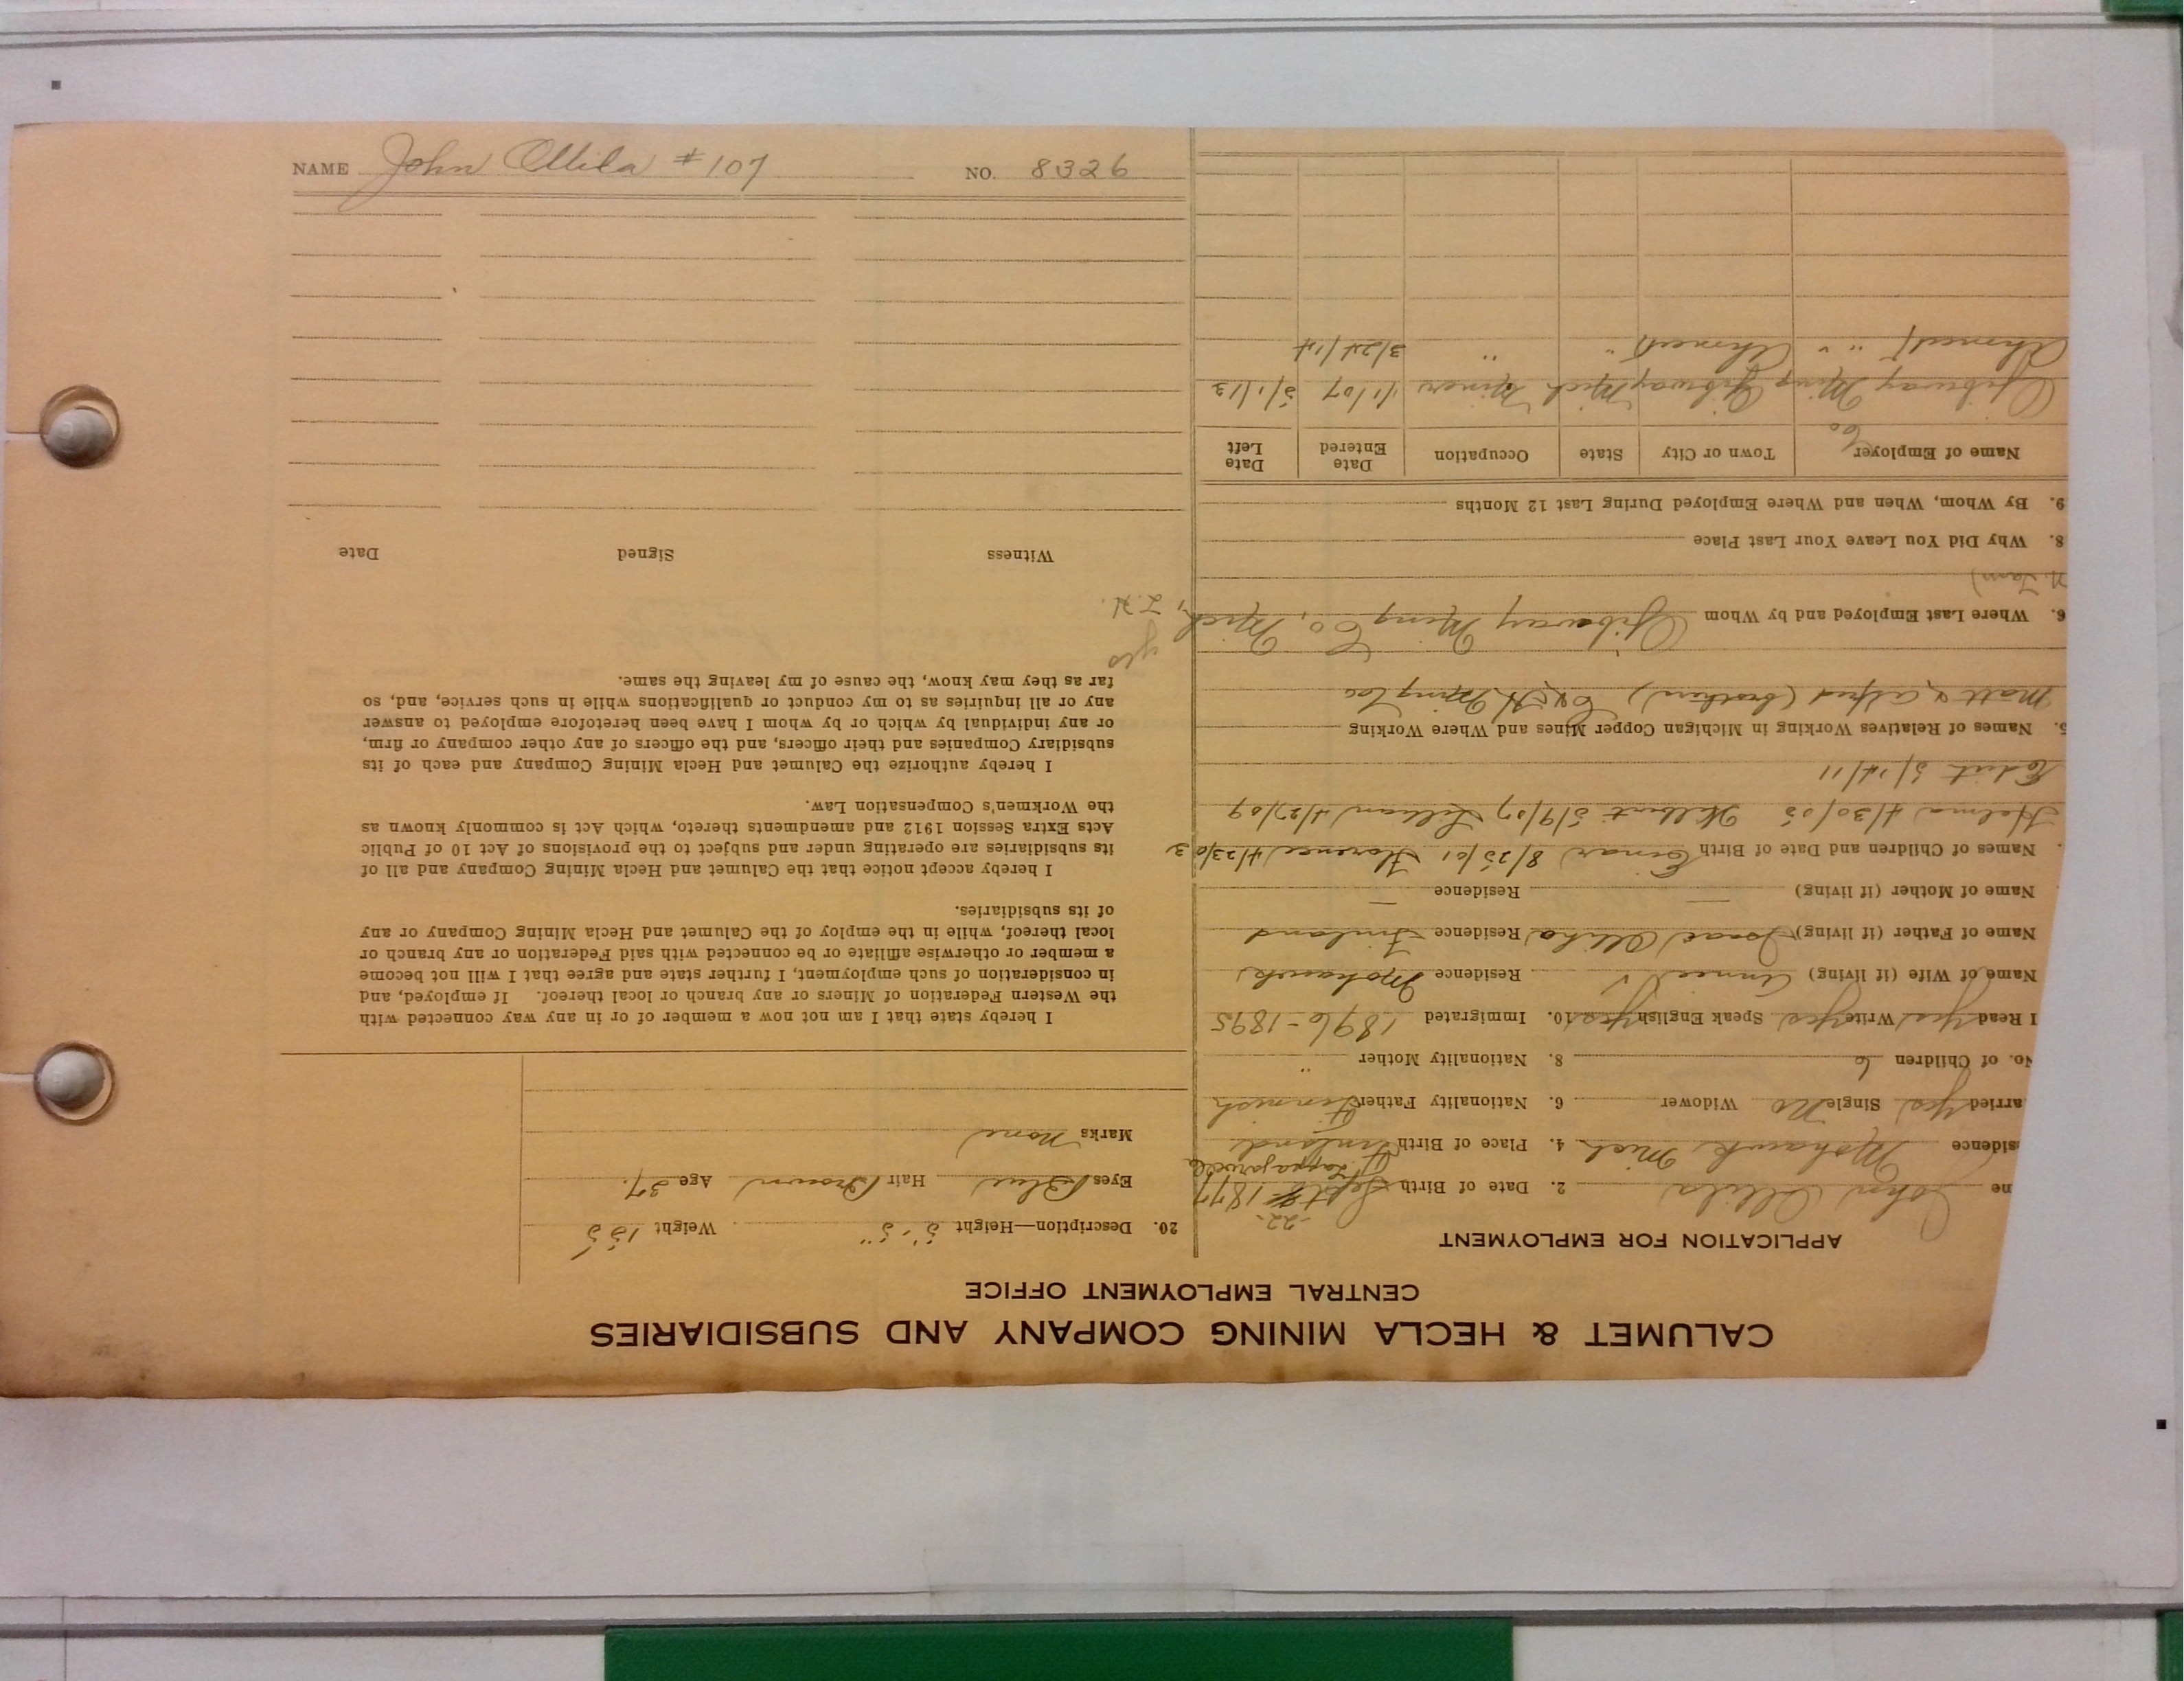 NAME John Ollila #107 NO. 8326
CALUMET & HECLA MINING COMPANY AND SUBSIDIARIES
CENTRAL EMPLOYMENT OFFICE
APPLICATION FOR EMPLOYMENT
me John Ollila 2. Date of Birth Sept 22 1877
sidence Mohawk Mich 4. Place of Birth Finland
arried yes Single No Widower 6. Nationality Father Finnish
No. of Children 6 8. Nationality Mother "
I Read yes Write yes Speak English yes 10. Immigrated 1896-1895
Name of Wife (if living) Annie Residence Mohawk
Name of Father (if living) Isaac Ollila Residence Finland
Name of Mother (if living) — Residence —
Names of Children and Date of Birth Einar 8/25/01 Florence 4/23/03
Helma 4/30/05 Wilbert 5/9/07 Lillian 4/27/09
5/14/11
5. Names of Relatives Working in Michigan Copper Mines and Where Working
Matt & Alfred (brothers) C & H Ming Co
6. Where Last Employed and by Whom Ojibway Ming Co, Mich
8. Why Did You Leave Your Last Place
9. By Whom, When and Where Employed During Last 12 Months
Name of Employer Town or City State Occupation Date Entered Date Left
Ojibway Ming Co Ojibway Mich Miner 1/1/07 5/1/13
Ahmeek " " Ahmeek " " 3/24/14
20. Description—Height 5'-5" Weight 155
Eyes Blue Hair Brown Age 37.
Marks None
I hereby state that I am not now a member of or in any way connected with
the Western Federation of Miners or any branch or local thereof. If employed, and
in consideration of such employment, I further state and agree that I will not become
a member or otherwise affiliate or be connected with said Federation or any branch or
local thereof, while in the employ of the Calumet and Hecla Mining Company or any
of its subsidiaries.
I hereby accept notice that the Calumet and Hecla Mining Company and all of
its subsidiaries are operating under and subject to the provisions of Act 10 of Public
Acts Extra Session 1912 and amendments thereto, which Act is commonly known as
the Workmen's Compensation Law.
I hereby authorize the Calumet and Hecla Mining Company and each of its
subsidiary Companies and their officers, and the officers of any other company or firm,
or any individual by which or by whom I have been heretofore employed to answer
any or all inquiries as to my conduct or qualifications while in such service, and, so
far as they may know, the cause of my leaving the same.
yes
Witness Signed Date